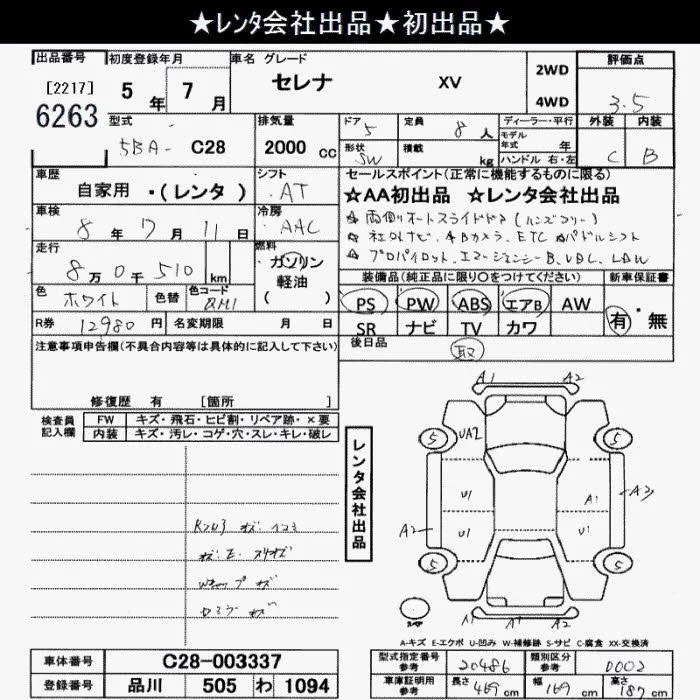 ★レンタ会社出品★初出品★
出品番号 初度登録年月 車名 グレード 評価点
[2217] 5 年 7 月 セレナ XV 2WD 4WD 3.5
6263
型式 排気量 ドア 5 定員 8 人 ディーラー・平行 外装 内装
5BA- C28 2000 cc 形状 SW 積載 kg モデル年式 年 ハンドル 右・左 C B
車歴 シフト セールスポイント(正常に機能するものに限る)
自家用 ・(レンタ) AT ☆AA初出品 ☆レンタ会社出品
車検 冷房 ☆ 両側オートスライドドア(ハンズフリー)
8 年 7 月 11 日 AAC ☆ 社外ナビ、4Bカメラ、ETC、パドルシフト
走行 燃料 ☆ プロパイロット、エマージェンシーB、VDC、LDW
8 万 0 千 510 km ガソリン 軽油 ( )
装備品(純正品に限り○をつけてください) 新車保証書
色 ホワイト 色替 色コード QM1
PS PW ABS エアB AW 有・無
SR ナビ TV カワ
R券 12980 円 名変期限 月 日
後日品 取
注意事項申告欄(不具合内容等は具体的に記入して下さい)
修復歴 有 [箇所 ]
検査員記入欄 FW キズ・飛石・ヒビ割・リペア跡・×要
内装 キズ・汚レ・コゲ・穴・スレ・キレ・破レ
レンタ会社出品
A1 A2
5 UA2 5
U1 A1 A2
A2 U1 U1
5 5
A1 A2
A-キズ E-エクボ U-凹み W-補修跡 S-サビ C-腐食 XX-交換済
車体番号 C28-003337
登録番号 品川 505 わ 1094
型式指定番号 参考 20486 類別区分 参考 0002
車庫証明用 参考 長さ 469 cm 幅 169 cm 高さ 187 cm